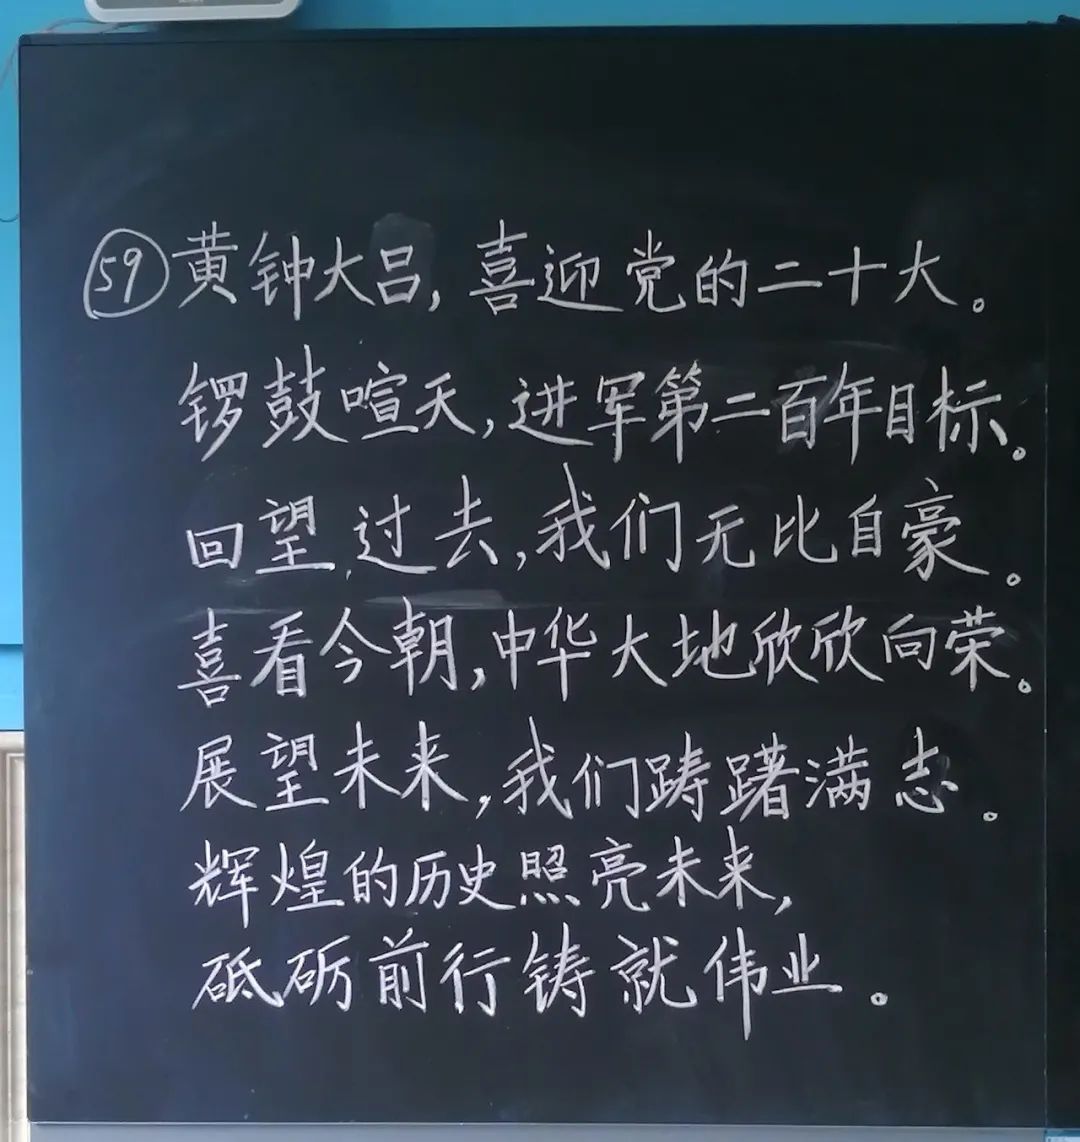 59 黄钟大吕,喜迎党的二十大。
锣鼓喧天,进军第二百年目标。
回望过去,我们无比自豪。
喜看今朝,中华大地欣欣向荣。
展望未来,我们踌躇满志。
辉煌的历史照亮未来,
砥砺前行铸就伟业。